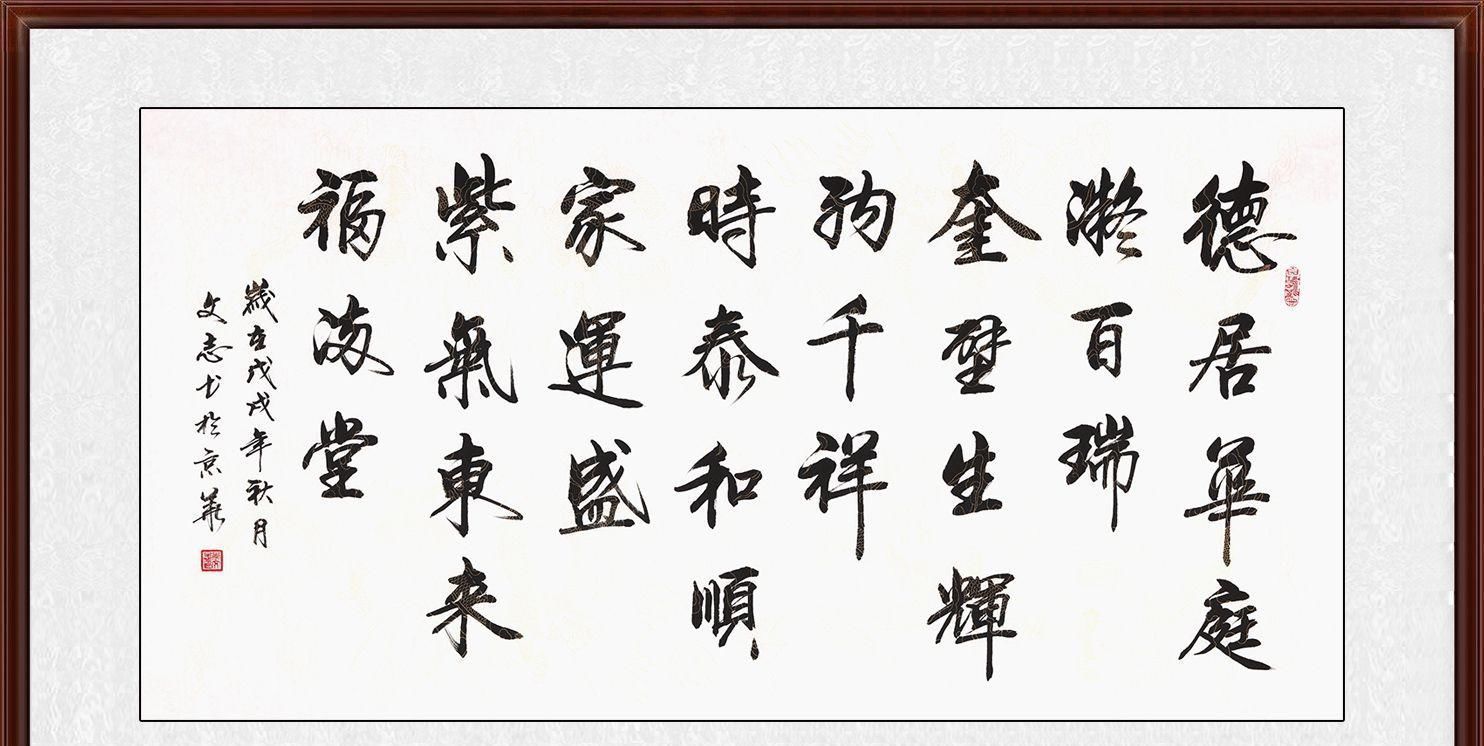 德居華庭
凝百瑞
奎壁生輝
納千祥
時泰和順
家運盛
紫氣東來
福滿堂
歲在戊戌年秋月
文志书於京華